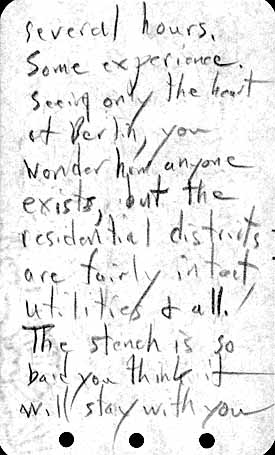 several hours.
Some experience.
Seeing only the heart
of Berlin, you
wonder how anyone
exists, but the
residential districts
are fairly intact
utilities & all.
The stench is so
bad you think it
will stay with you